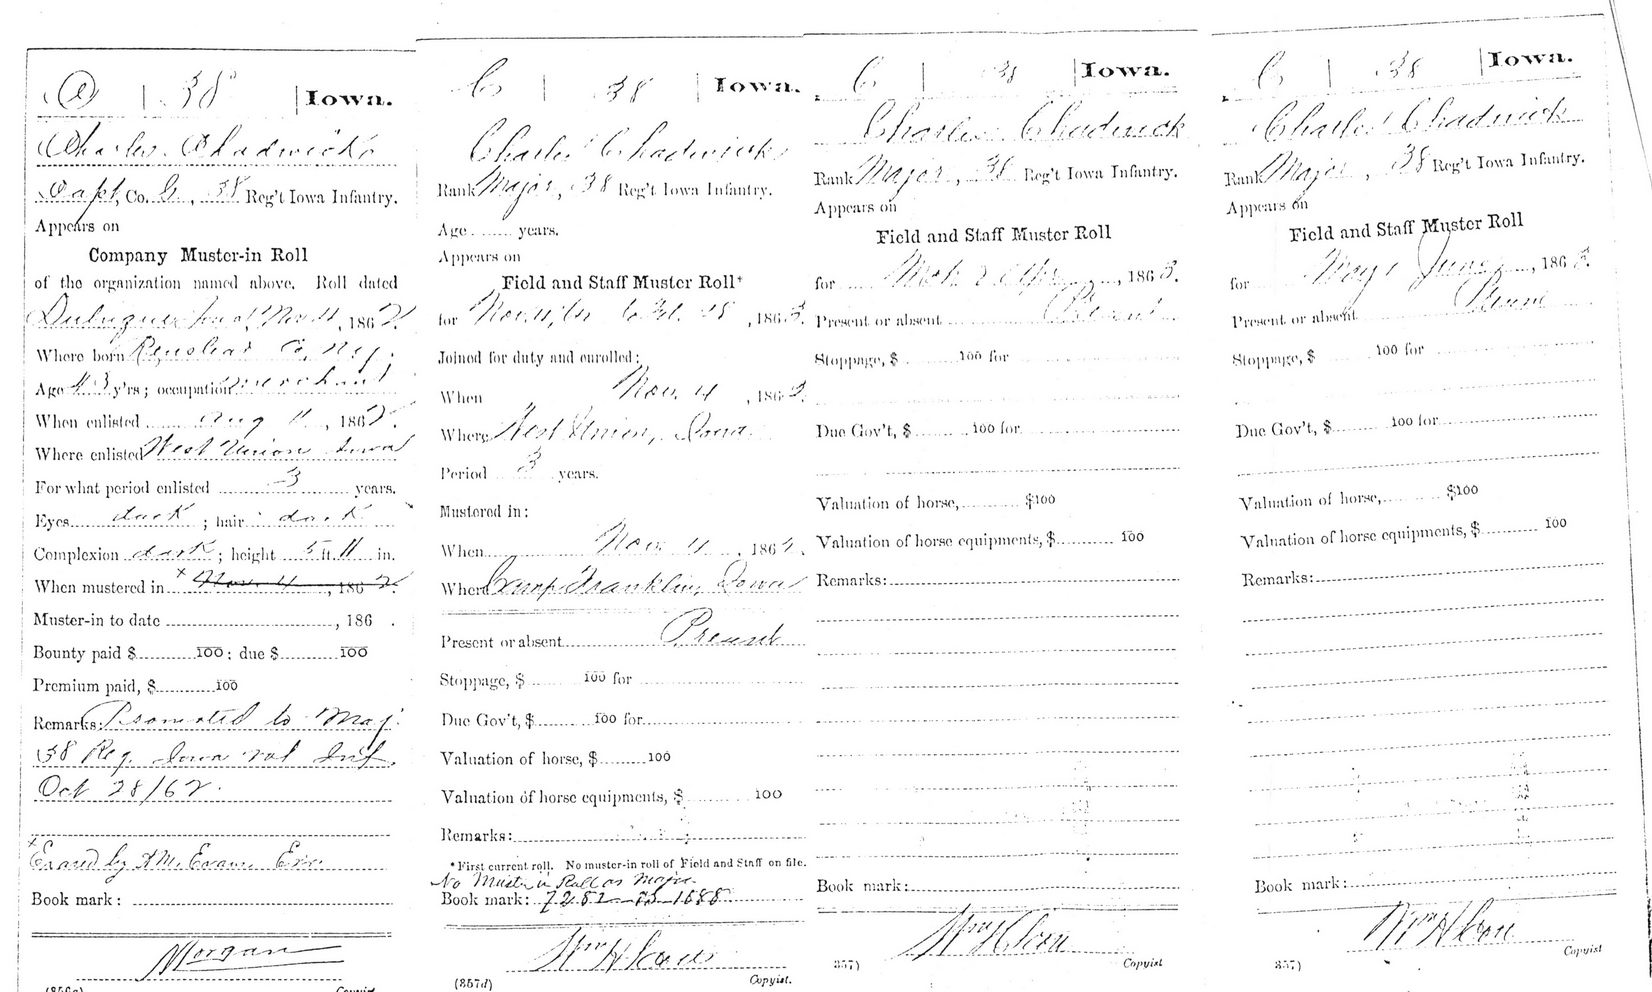 C | 38 | Iowa.
Charles Chadwick
Capt, Co. G, 38 Reg't Iowa Infantry.
Appears on
Company Muster-in Roll
of the organization named above. Roll dated
Dubuque Iowa, Nov 4, 1862.
Where born Co, N.Y.
Age 43 y'rs; occupation merchant
When enlisted Aug 11, 1862.
Where enlisted West Union Iowa
For what period enlisted 3 years.
Eyes dark; hair dark
Complexion dark; height 5 ft. 11 in.
When mustered in x Nov. 4, 1862.
Muster-in to date, 186 .
Bounty paid $ 100; due $ 100
Premium paid, $ 100
Remarks: Promoted to Maj.
38 Reg. Iowa vol Inf.
Oct 28/62.
x Erased by
Book mark:
Morgan
(356c)
Copyist.
C | 38 | Iowa.
Charles Chadwick
Rank Major, 38 Reg't Iowa Infantry.
Age years.
Appears on
Field and Staff Muster Roll*
for Nov. 4, to Feb. 28, 1863.
Joined for duty and enrolled:
When Nov. 4, 1862.
Where West Union, Iowa.
Period 3 years.
Mustered in:
When Nov. 4, 1862.
Where Camp Franklin, Iowa
Present or absent Present
Stoppage, $ 100 for
Due Gov't, $ 100 for
Valuation of horse, $ 100
Valuation of horse equipments, $ 100
Remarks:
*First current roll. No muster-in roll of Field and Staff on file.
No Muster in Roll as Major.
Book mark: 7282-B-1888
Wm H
(357d)
Copyist.
C | 38 | Iowa.
Charles Chadwick
Rank Major, 38 Reg't Iowa Infantry.
Appears on
Field and Staff Muster Roll
for Mch & Apr, 1863.
Present or absent Present
Stoppage, $ 100 for
Due Gov't, $ 100 for
Valuation of horse, $100
Valuation of horse equipments, $ 100
Remarks:
Book mark:
Wm H
357)
Copyist
C | 38 | Iowa.
Charles Chadwick
Rank Major, 38 Reg't Iowa Infantry.
Appears on
Field and Staff Muster Roll
for May & June, 1863.
Present or absent Present
Stoppage, $ 100 for
Due Gov't, $ 100 for
Valuation of horse, $100
Valuation of horse equipments, $ 100
Remarks:
Book mark:
Wm H
357)
Copyist